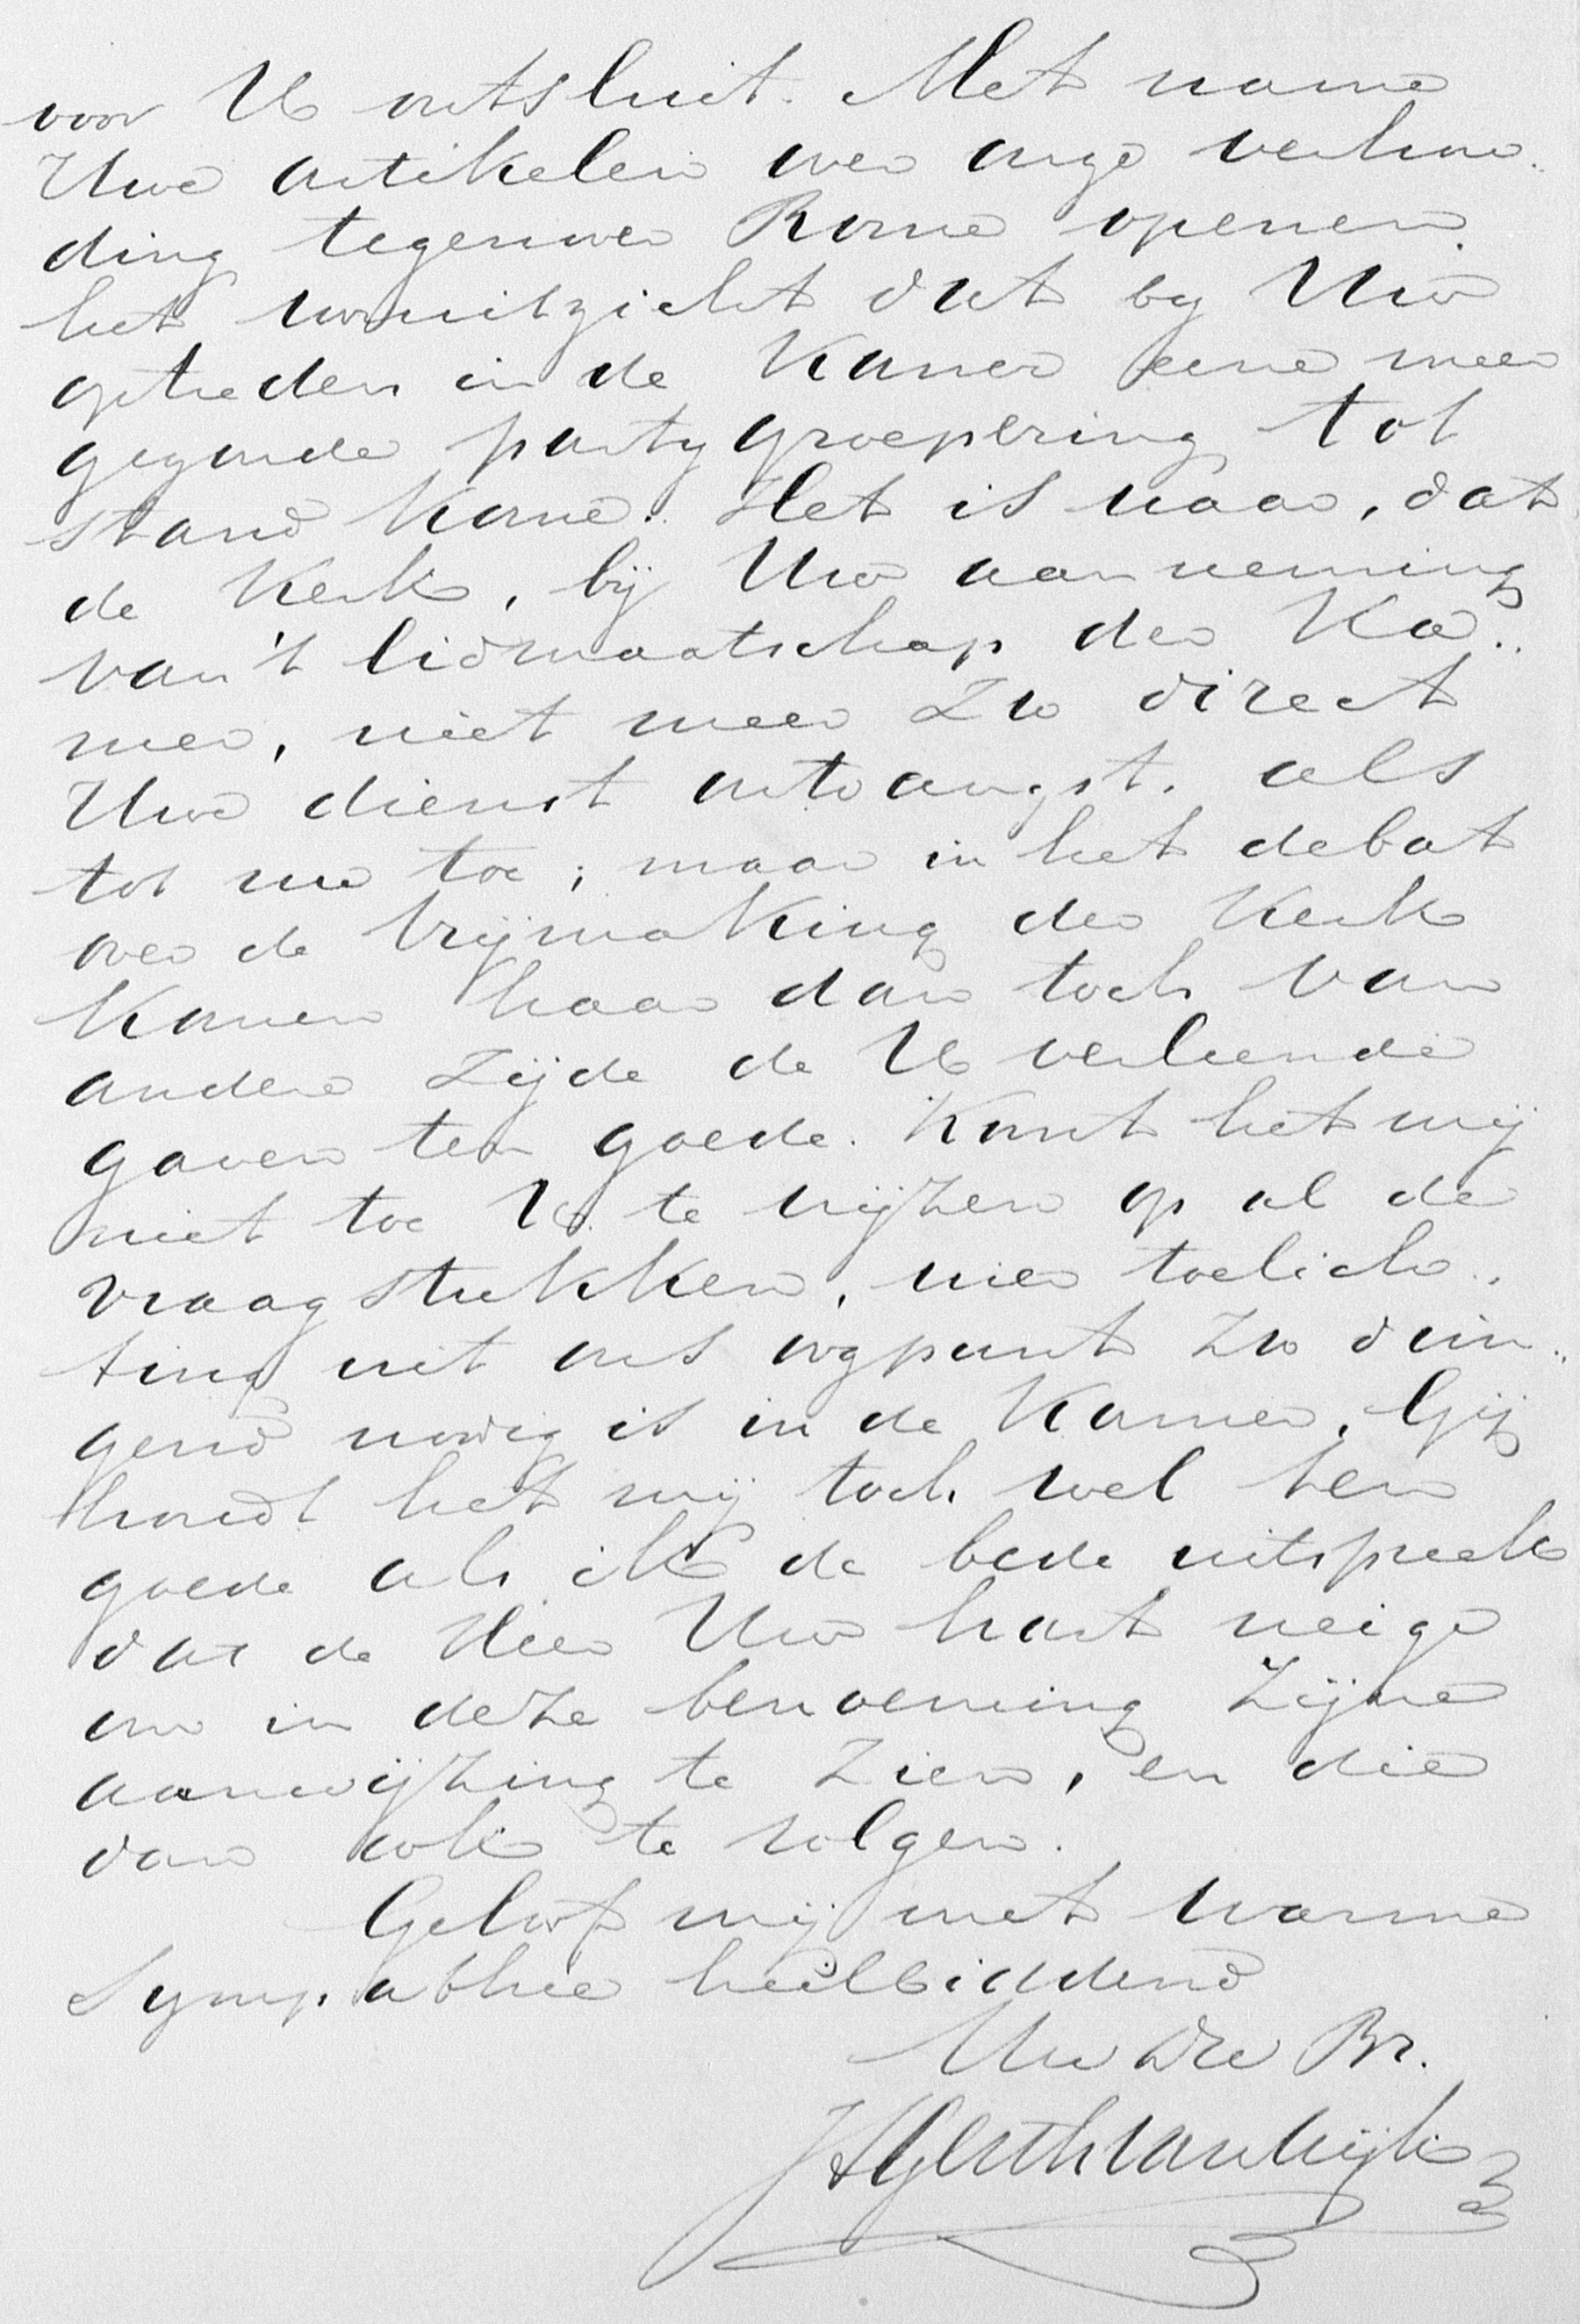 voor U ontsluit. Met name
Uwe artikelen over onze verhou-
ding tegenover Rome openen
het vooruitzicht dat by Uw
optreden in de Kamer eene meer
gezonde partygroepering tot
stand kome. Het is waar, dat
de Kerk, bij Uw aanneming
van 't lidmaatschap der Ka-
mer, niet meer zoo direct
Uwe dienst ontvangst, als
tot nu toe; maar in het debat
over de vrijmaking der Kerk
komen haar dan toch van
andere zijde de U verleende
gaven ten goede. Komt het mij
niet toe U te wijzen op al de
vraagstukken, wier toelich-
ting uit ons oogpunt zoo drin-
gend noodig is in de Kamer, Gij
houdt het mij toch wel ten
goede als ik de bede uitspreek
dat de Heer Uw hart neige
om in deze benoeming Zijne
aanwijzing te zien, en die
dan ook te volgen.
Geloof mij met warme
Sympathie heilbiddend
Uw Dw Br.
JHGerth van Wijk